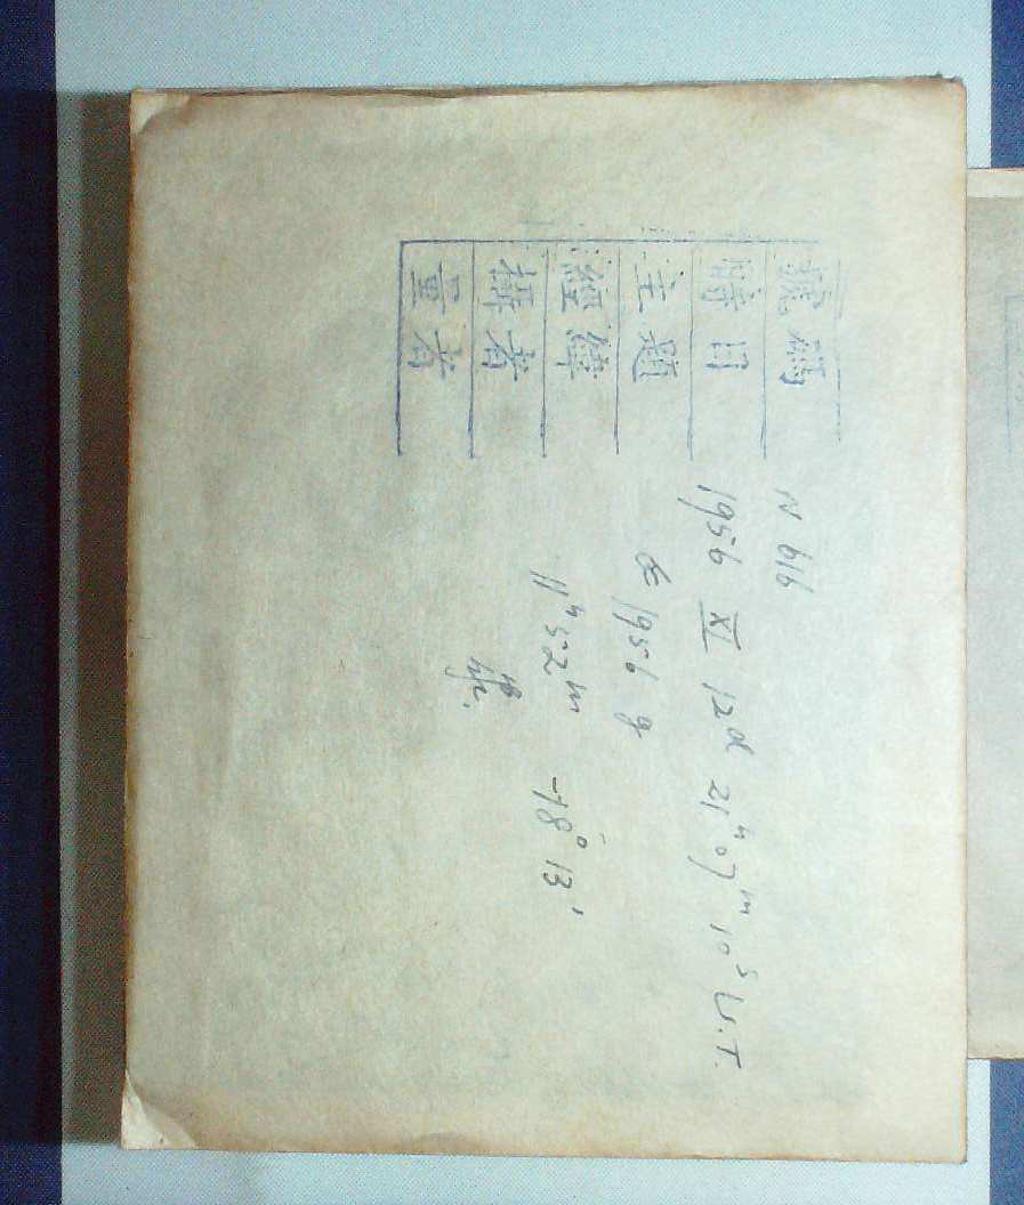 號碼 N 616
時日 1956 XI 12d 21h 07m 10s U.T.
主題 1956 g
經緯 11h 52m -18° 13'
攝者
量者